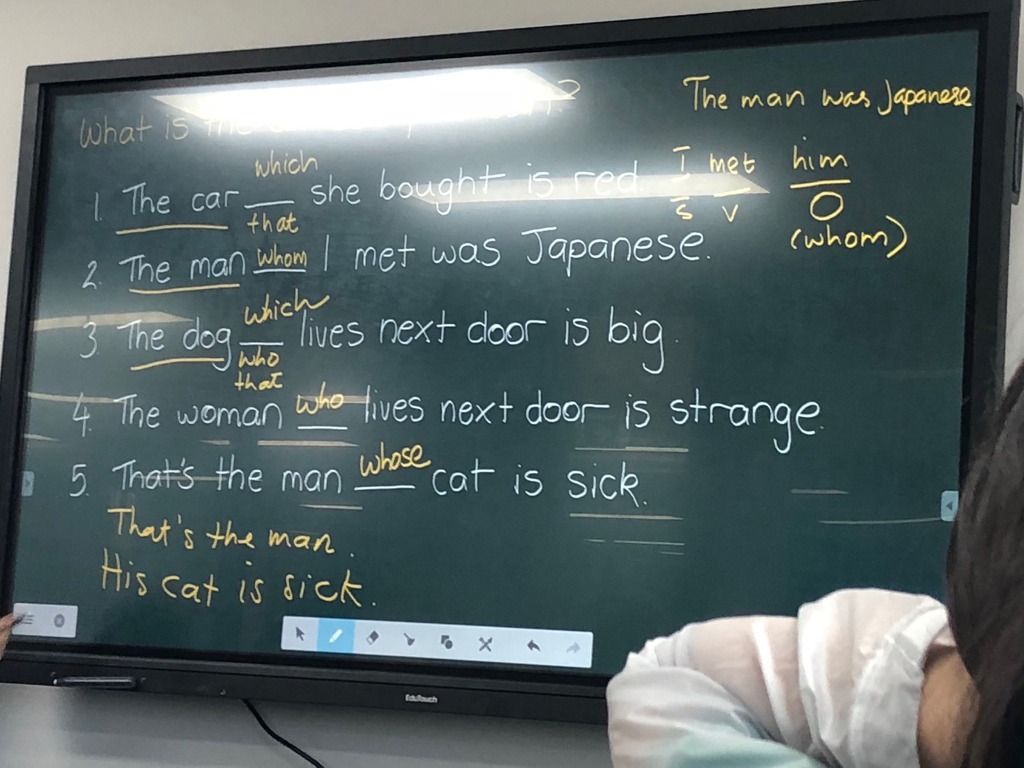 What is the
The man was Japanese
which
1. The car ___ she bought is red.
that
I met him
S V O
(whom)
2. The man whom I met was Japanese.
which
3. The dog ___ lives next door is big.
who
that
4. The woman who lives next door is strange.
5. That's the man whose cat is sick.
That's the man.
His cat is sick.
EduTouch